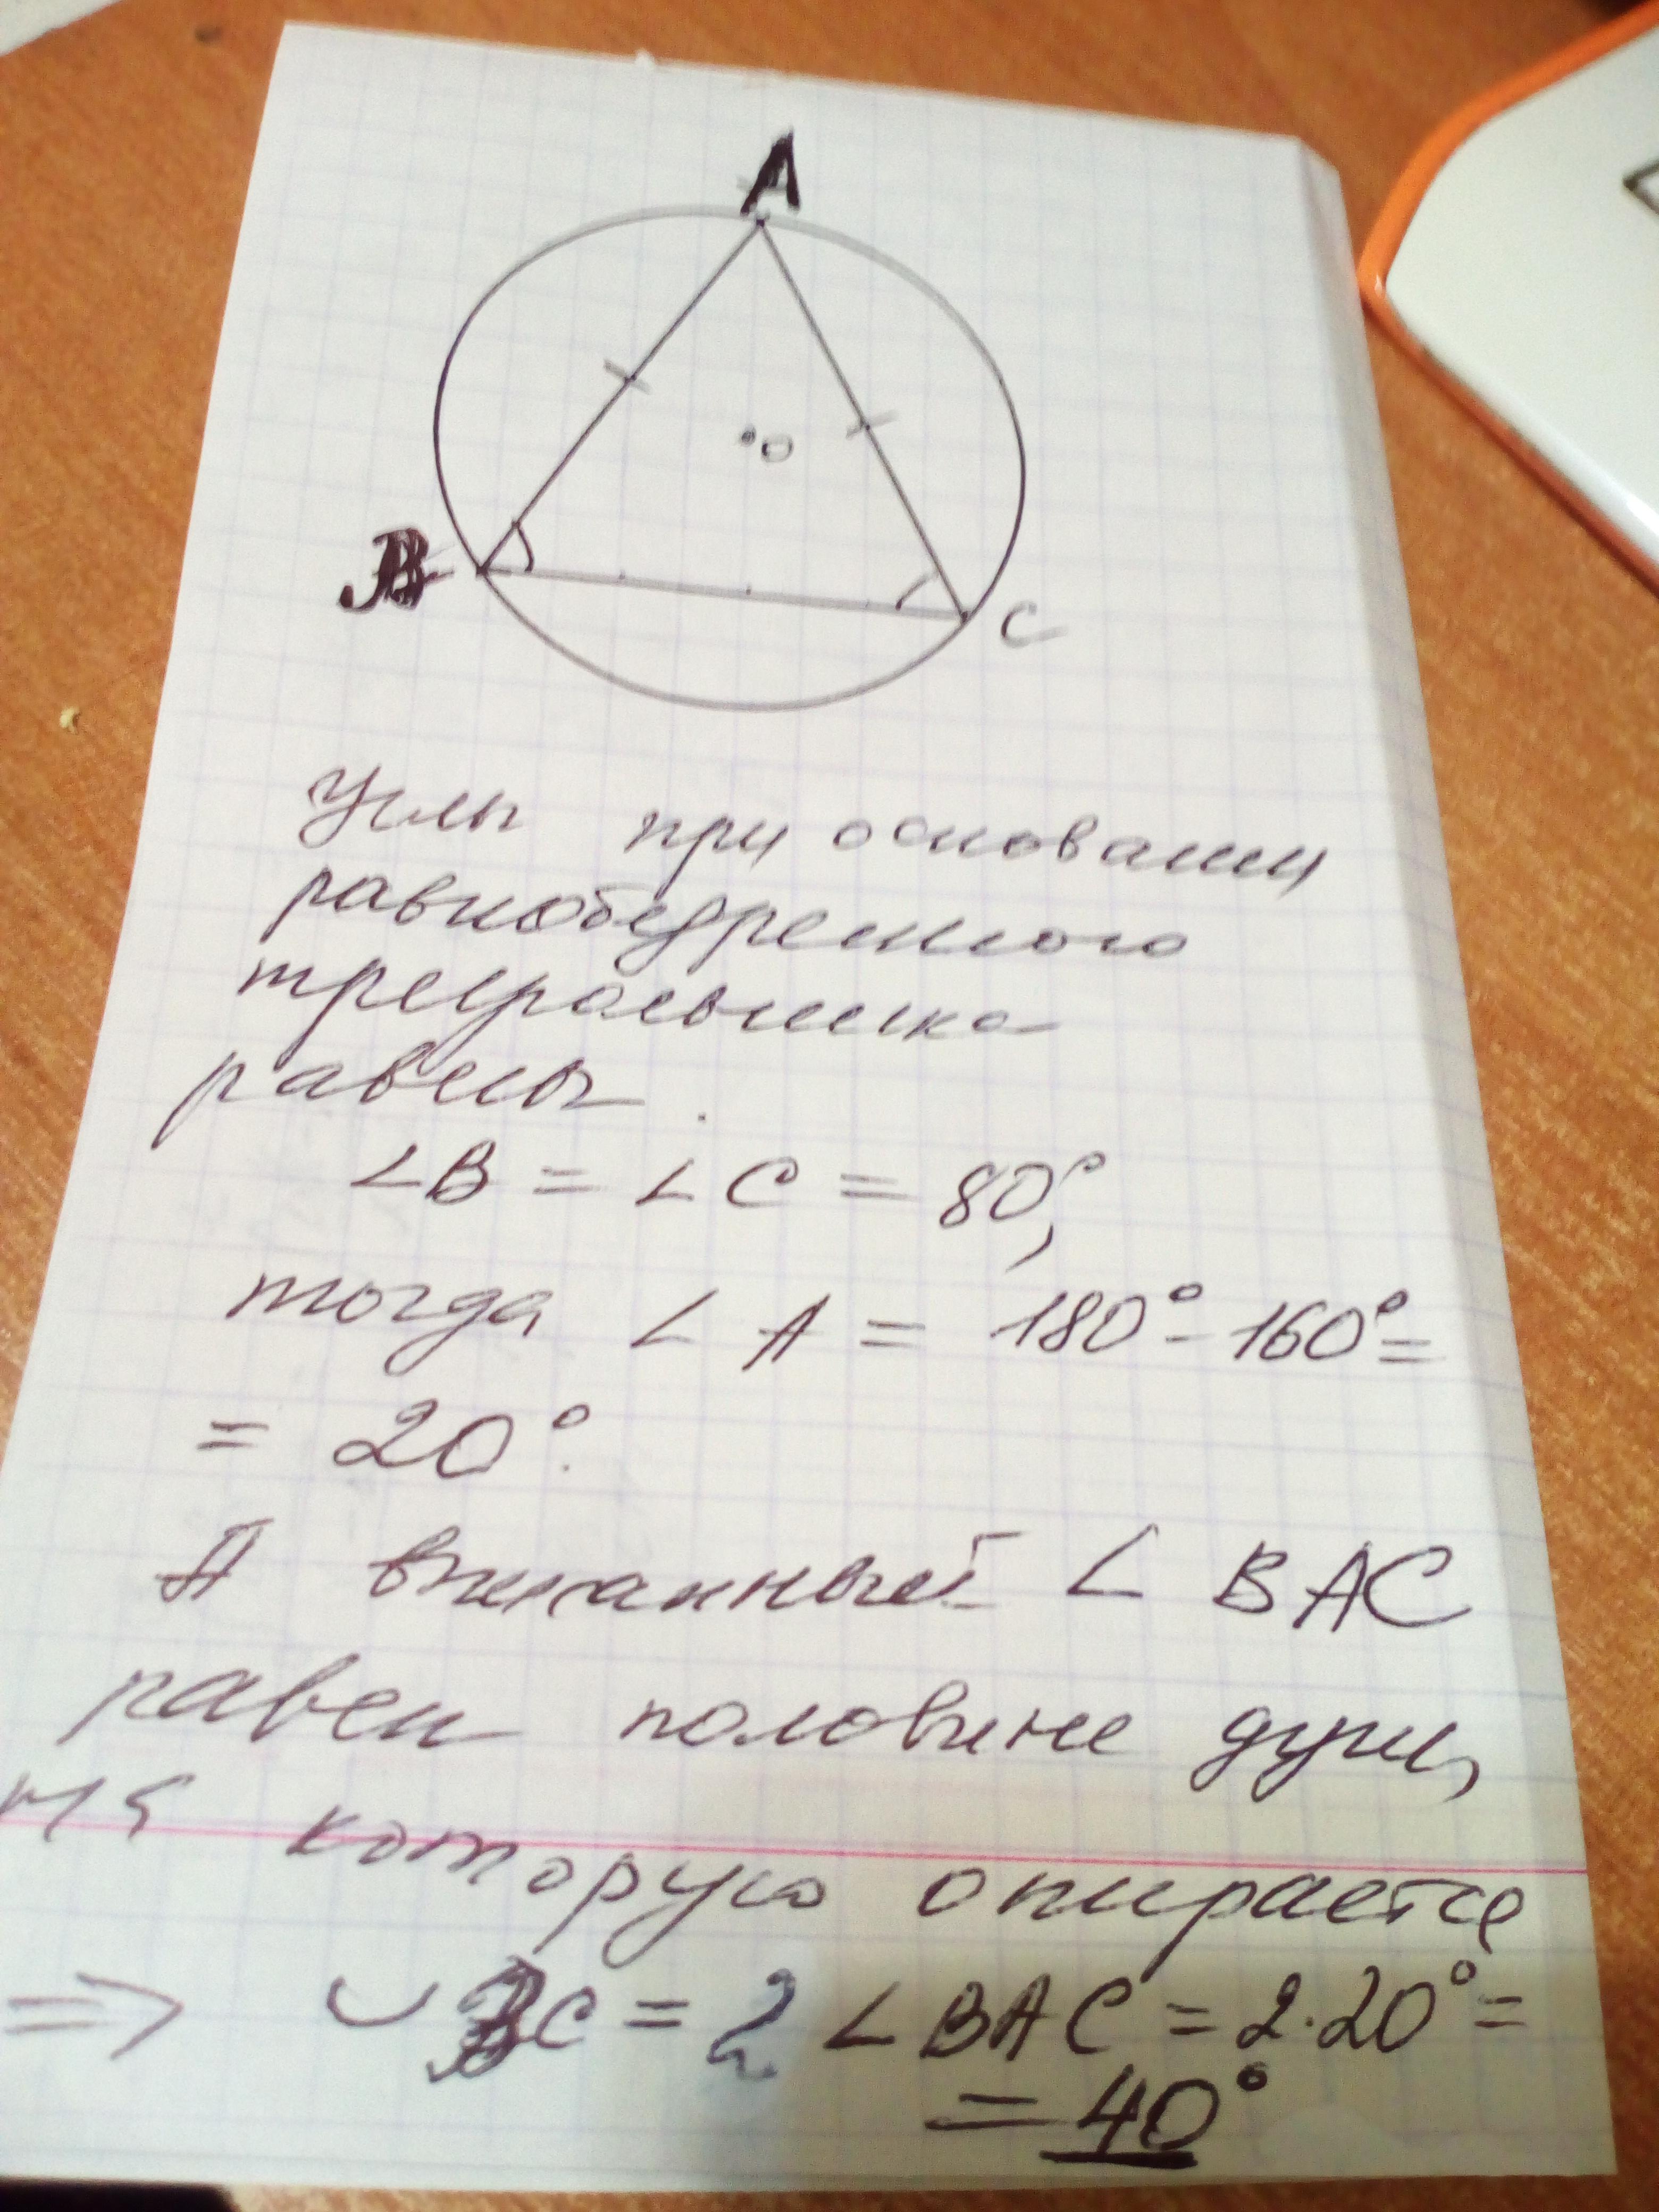 A
O
B
C
Углы при основании
равнобедренного
треугольника
равны.
∠B = ∠C = 80°,
тогда ∠A = 180° - 160° =
= 20°.
А вписанный ∠BAC
равен половине дуги,
на которую опирается
=> ◡BC = 2∠BAC = 2·20° =
= 40°